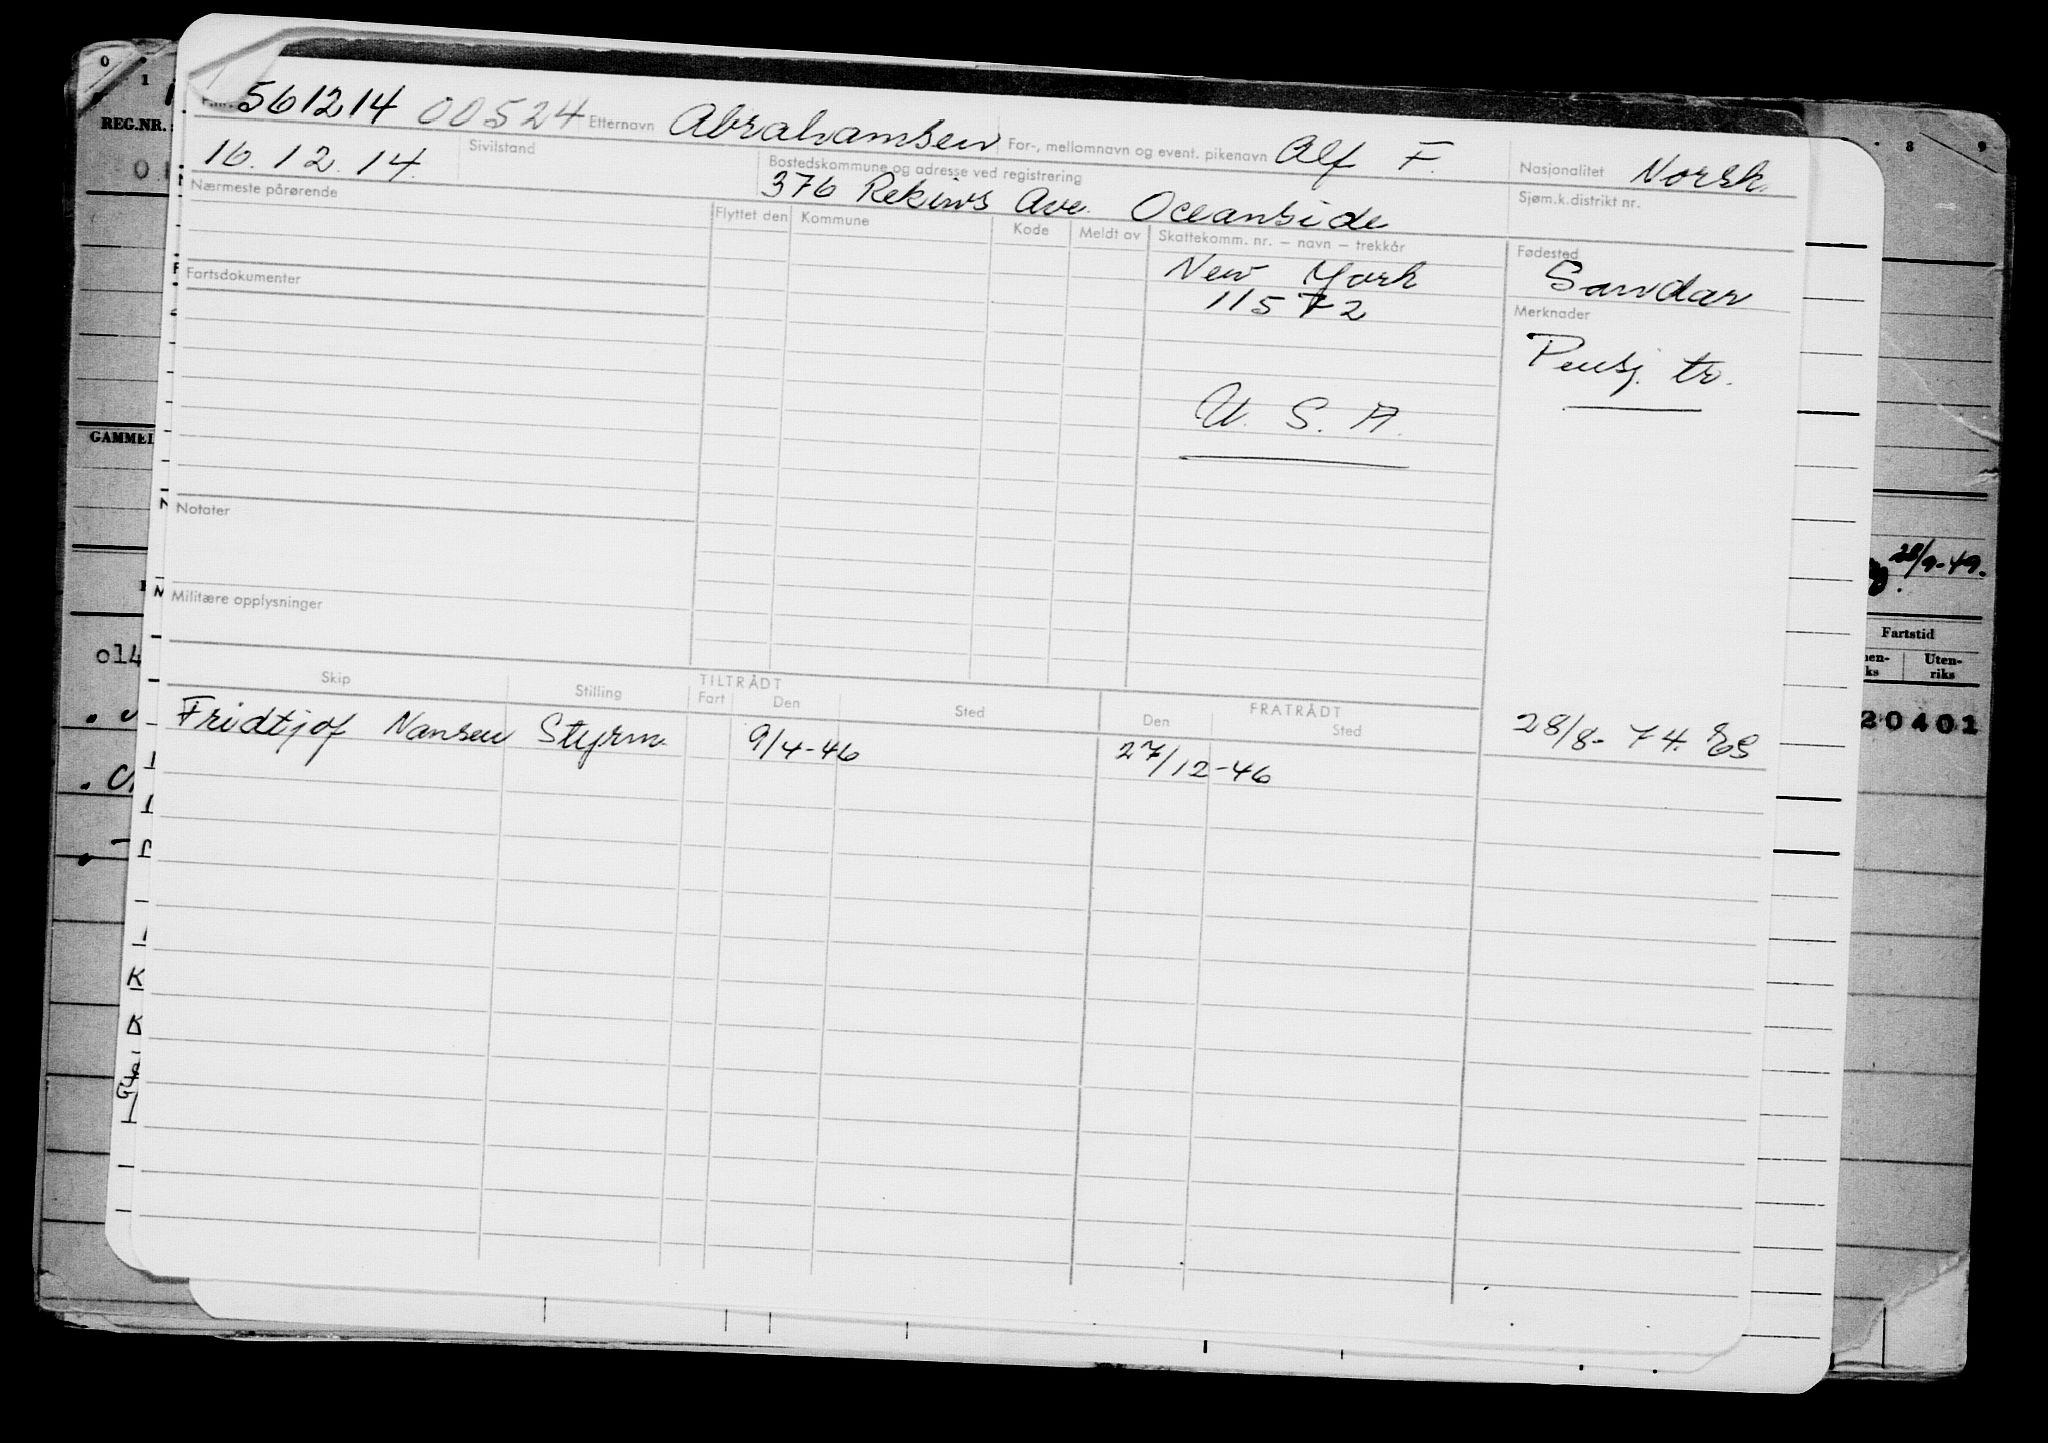 0 1
8 9
REG.NR.
F.nr. 561214 00524 Etternavn Abrahamsen For-, mellomnavn og event. pikenavn Alf F. Nasjonalitet Norsk
16.12.14. Sivilstand Bostedskommune og adresse ved registrering Sjøm.k.distrikt nr.
Nærmeste pårørende 376 Ave. Oceanside
Flyttet den Kommune Kode Meldt av Skattekomm. nr. – navn – trekkår Fødested
New York Sandar
11572
Fartsdokumenter Merknader
Pensj. tr.
U. S. A.
GAMMEL
Notater
28/9-49.
Militære opplysninger
Fartstid
Uten-
riks
014
Skip Stilling TILTRÅDT FRATRÅDT
Fart Den Sted Den Sted
Fridtjof Nansen Styrm. 9/4-46 27/12-46 28/8-74.
20401
K
K